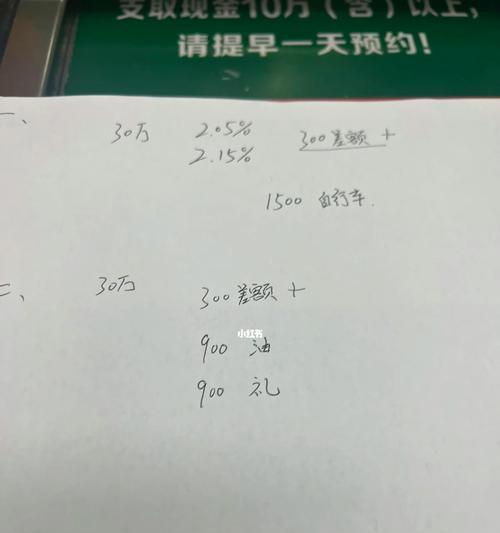 支取现金10万（含）以上，
请提早一天预约！
一、 30万 2.05% 300差额 +
2.15%
1500 自行车.
二、 30万 300差额 +
小红书
900 油
900 礼